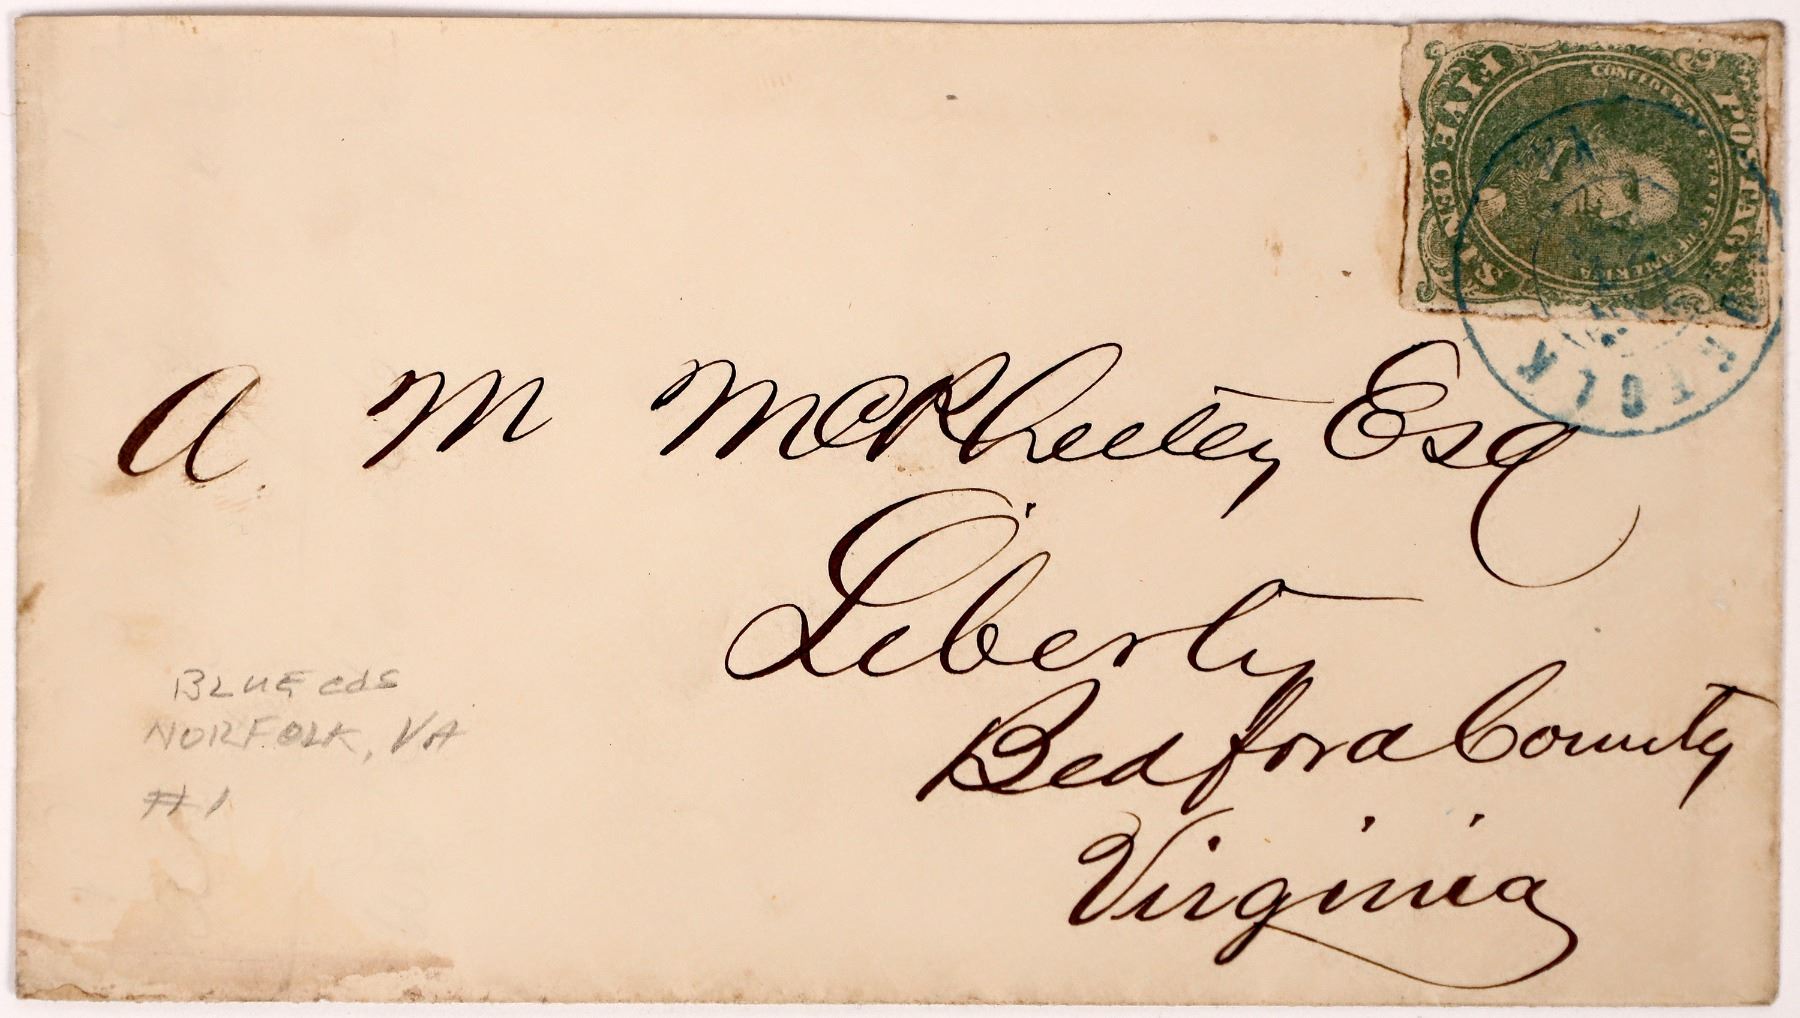 FIVE CENTS
CONFEDERATE STATES OF AMERICA
POSTAGE
NORFOLK VA
A M McRheeley Esq
Liberty
Bedford County
Virginia
BLUE cds
NORFOLK, VA
#1